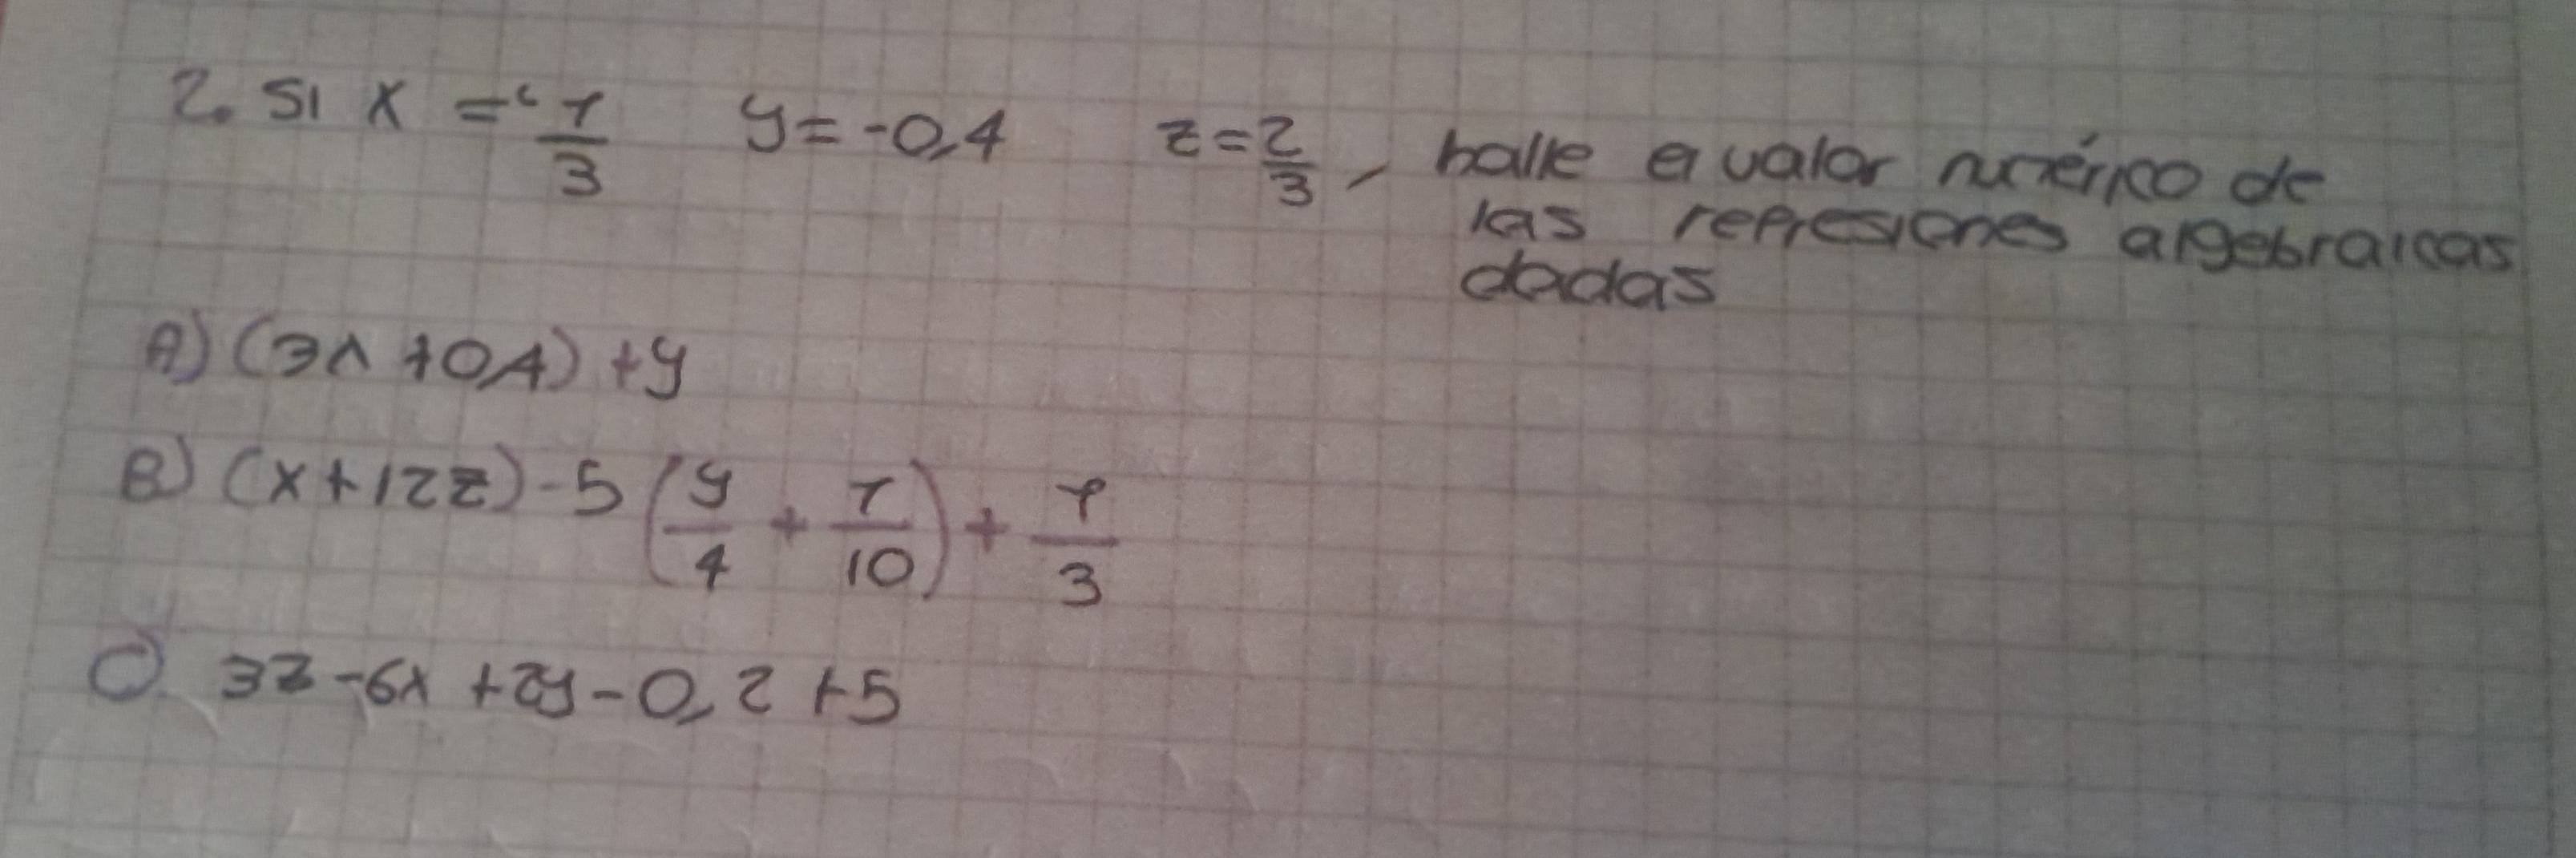 2. SI X = -1/3 y = -0,4 z = 2/3, halle el valor numérico de
las represiones algebraicas
dadas
A) (3x + 0,4) + y
B) (x + 12z) - 5 (y/4 + 1/10) + 1/3
C) 3z - 6x + 2y - 0,2 + 5